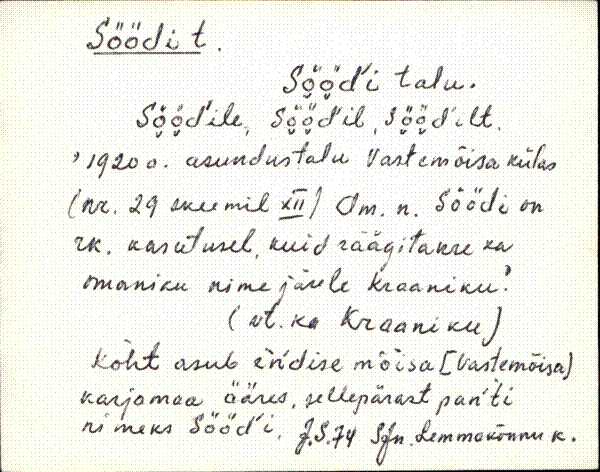 Söödi t.
Sö̬ö̬d'i talu.
Sö̬ö̬d'ile, Sö̬ö̬d'il, Sö̬ö̬d'ilt.
"1920 a. asundustalu Vastemõisa külas
(nr. 29 skeemil XII) Om. n. Söödi on
rk. kasutusel, kuid räägitakse ka
omaniku nime järele Kraaniku."
(vt. ka Kraaniku)
Koht asub en'dise mõisa [Vastemõisa]
karjamaa ääres, sellepärast pan'ti
nimeks Sööd'i. J.S. 74 Sjn. Lemmakõnnu k.